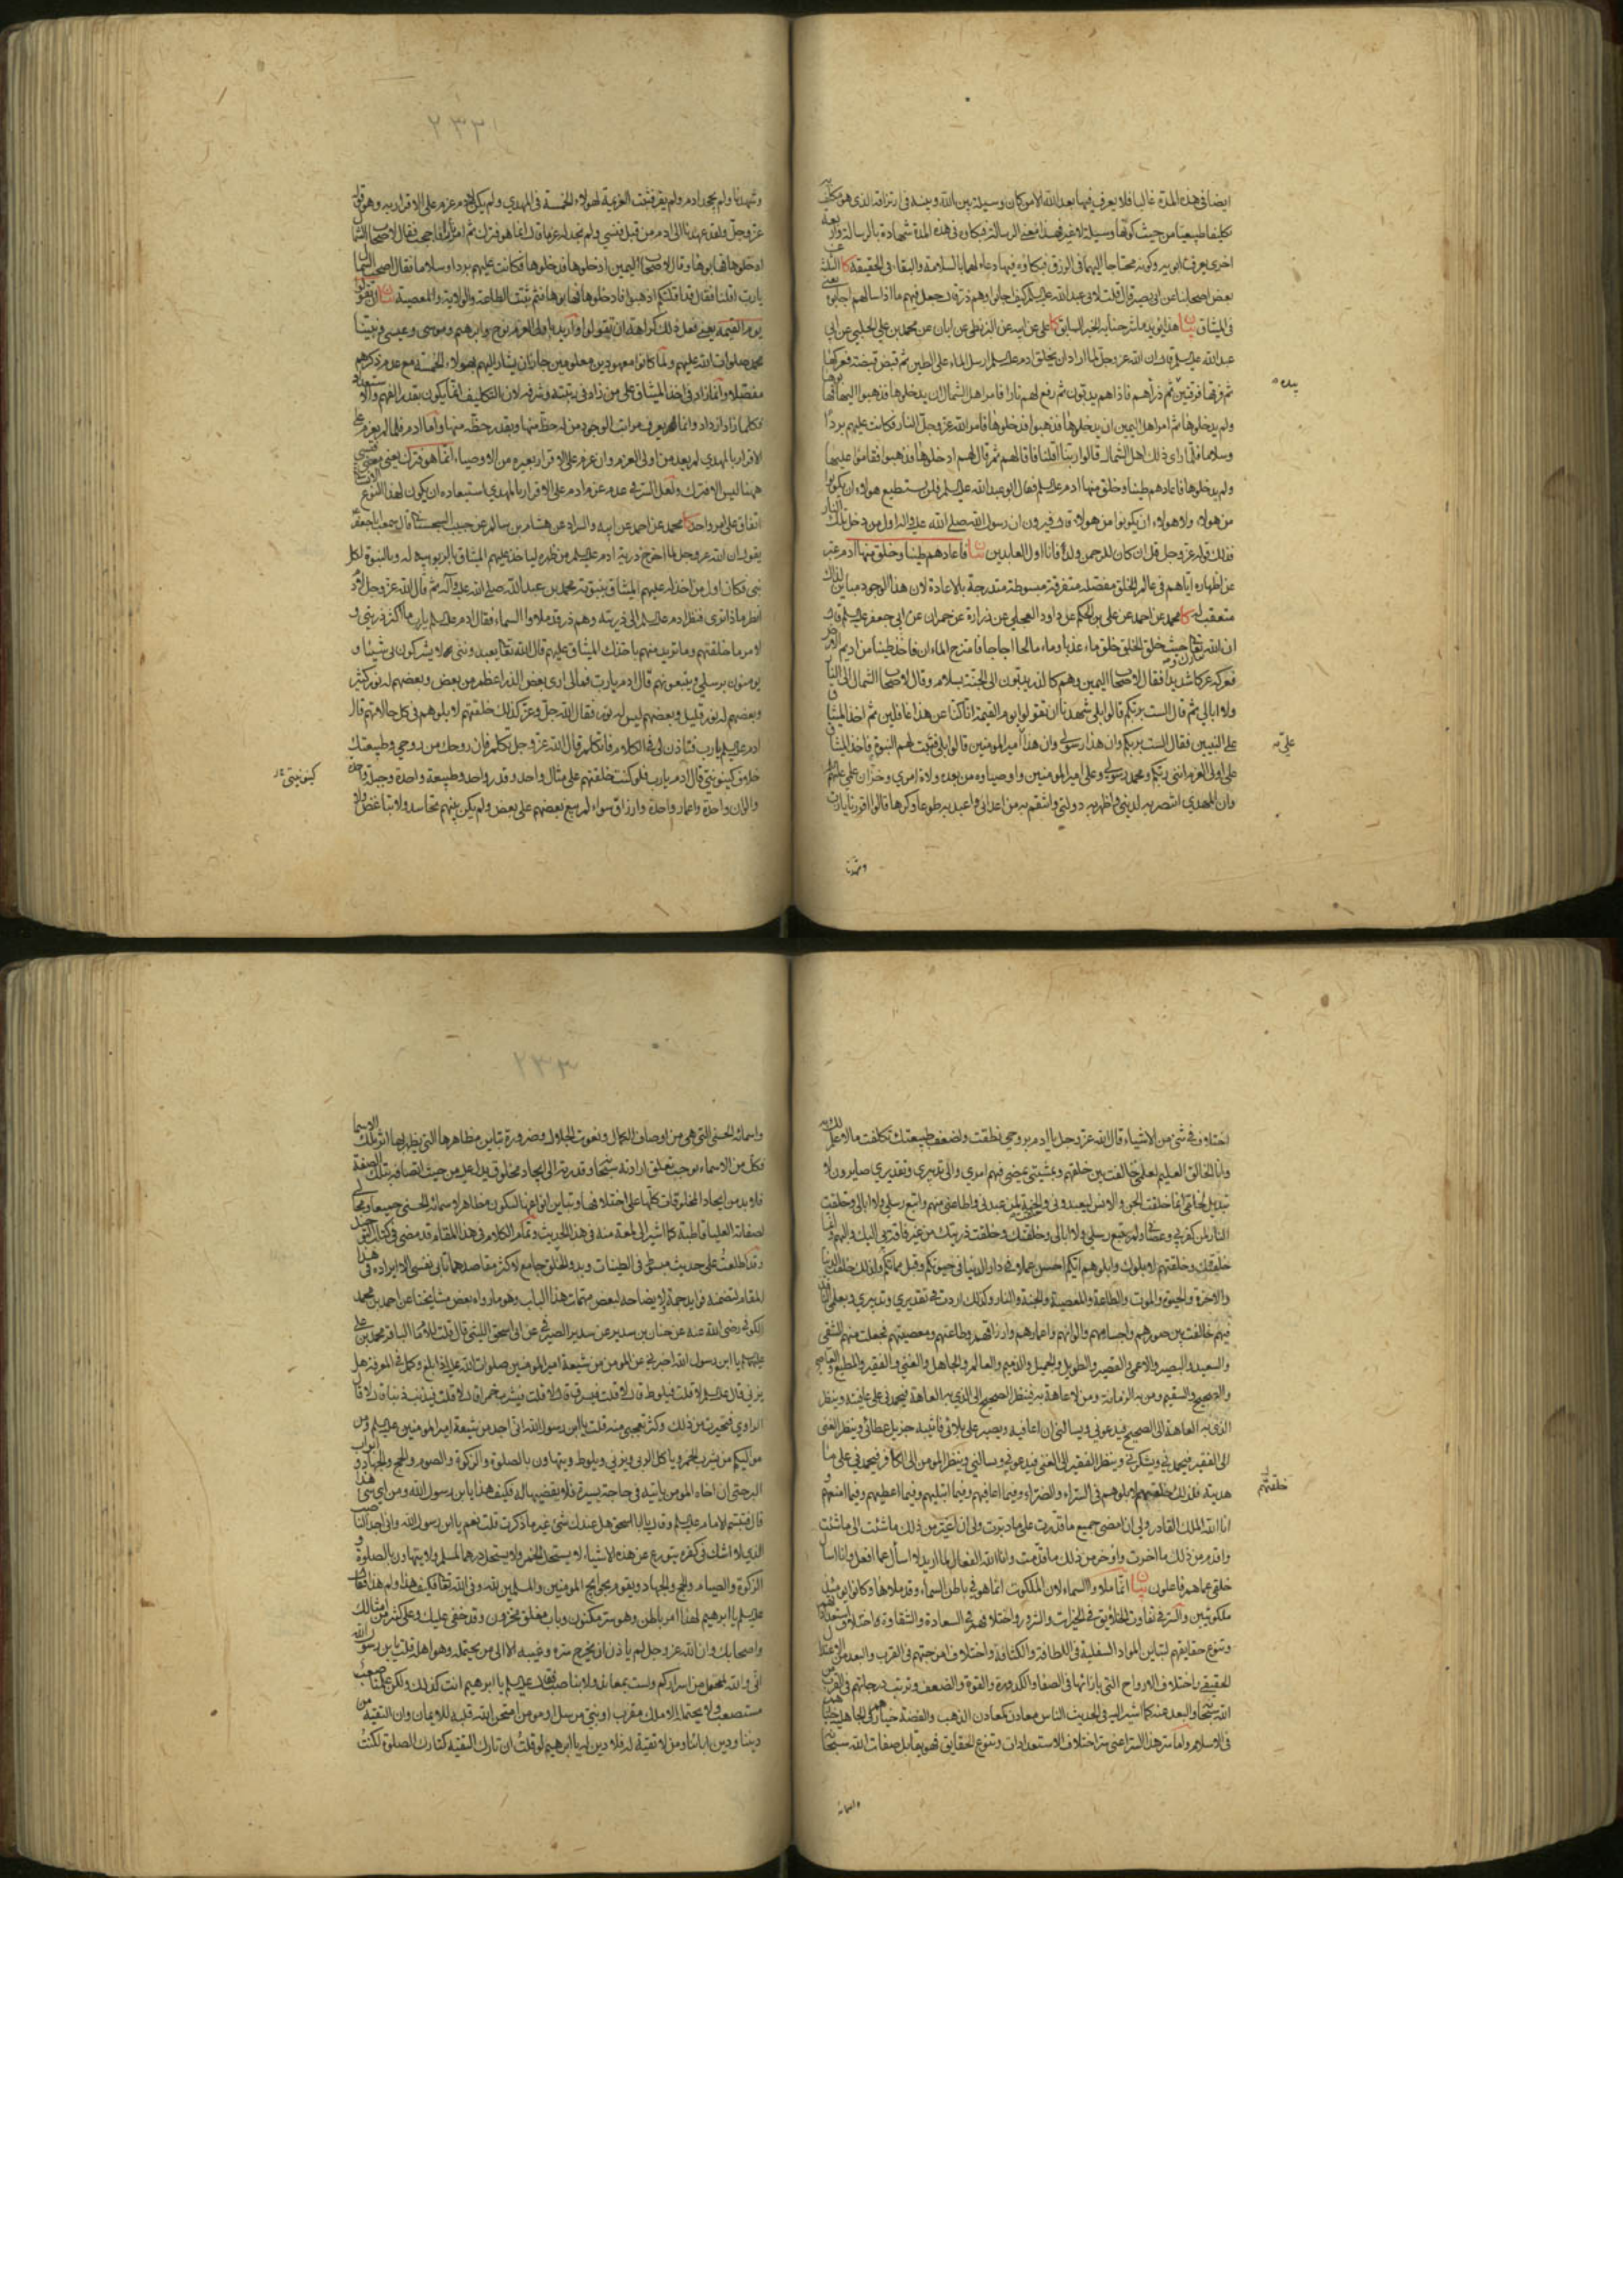 ايضا فى هذه المدة غالبا فلا يعرف فيها بعد الله الا من كان وسيلة بين الله وبينه فى ارتزاقه الذى هو مكلف به
تكليفا طبيعيا من حيث كونها وسيلة لا غير فهذا معنى الرسالة فبكاؤه فى هذه المدة شهادة بالرسالة واربعة
اخرى يعرف ابويه وكونه محتاجا اليهما فى الرزق فبكاؤه فيها دعاء لهما بالسلامة والبقاء فى الحقيقة كا الثلثة
بعض اصحابنا عن ابى بصير قال قلت لابى عبد الله عليه السلم كيف اجابوا وهم ذر قال جعل فيهم ما اذا سالهم اجابوا يعنى
فى الميثاق بيان هذا يؤيد ما شرحنا به الخبر السابق كا على عن ابيه عن البزنطى عن ابان عن محمد بن على الحلبى عن ابى
عبد الله عليه السلم قال ان الله عز وجل لما اراد ان يخلق ادم عليه السلم ارسل الماء على الطين ثم قبض قبضة فعركها
ثم فرقها فرقتين ثم ذراهم فاذا هم يدبون ثم رفع لهم نارا فامر اهل الشمال ان يدخلوها فذهبوا اليها فهابوها
بيده
ولم يدخلوها ثم امر اهل اليمين ان يدخلوها فذهبوا فدخلوها فامر الله عز وجل النار فكانت عليهم بردا
وسلاما فلما راى ذلك اهل الشمال قالوا ربنا اقلنا فاقالهم ثم قال لهم ادخلوها فذهبوا فقاموا عليها
ولم يدخلوها فاعادهم طينا وخلق منها ادم عليه السلم فقال ابو عبد الله عليه السلم فلن يستطيع هؤلاء ان يكونوا
من هؤلاء ولا هؤلاء ان يكونوا من هؤلاء قال فيرون ان رسول الله صلى الله عليه واله اول من دخل تلك النار
فذلك قوله عز وجل قل ان كان للرحمن ولد فانا اول العابدين بيان فاعادهم طينا وخلق منها ادم عبر
عن اظهاره اياهم فى عالم الخلق مفصلة متفرقة مبسوطة متدرجة بالاعادة لان هذا الوجود مباين لذلك
متعقب له كا محمد عن احمد عن على بن الحكم عن داود العجلى عن زرارة عن حمران عن ابى جعفر عليه السلم قال
ان الله تعالى حيث خلق الخلق خلق ماء عذبا وماء مالحا اجاجا فامتزج الماءان فاخذ طينا من اديم الارض
فعركه عركا شديدا فقال لاصحاب اليمين وهم كالذر يدبون الى الجنة بسلام وقال لاصحاب الشمال الى النار
ولا ابالى ثم قال الست بربكم قالوا بلى شهدنا ان تقولوا يوم القيمة انا كنا عن هذا غافلين ثم اخذ الميثاق
على النبيين فقال الست بربكم وان هذا رسولى وان هذا امير المومنين قالوا بلى فثبتت لهم النبوة واخذ الميثاق
على اولى العزم اننى ربكم ومحمد رسولى وعلى امير المومنين واوصياؤه من بعده ولاة امرى وخزان علمى
وان المهدى انتصر به لدينى واظهر به دولتى وانتقم به من اعدائى واعبد به طوعا وكرها قالوا اقررنا يا رب
وشهدنا
٢٣٢
وشهدنا ولم يجحد ادم ولم يقر فثبتت العزيمة لهؤلاء الخمسة فى المهدى ولم يكن لادم عزم على الاقرار به وهو قوله
عز وجل ولقد عهدنا الى ادم من قبل فنسى ولم نجد له عزما قال انما هو فترك ثم امر نارا فاججت فقال لاصحاب الشمال
ادخلوها فهابوها وقال لاصحاب اليمين ادخلوها فدخلوها فكانت عليهم بردا وسلاما فقال اصحاب الشمال
يا رب اقلنا فقال قد اقلتكم اذهبوا فادخلوها فهابوها فثم ثبتت الطاعة والولاية والمعصية بيان ان تقولوا
يوم القيمة يعنى فعل ذلك كراهة ان تقولوا واريد باولى العزم نوح وابرهيم وموسى وعيسى ونبينا
محمد صلوات الله عليهم ولما كانوا معهودين معلومين جاز ان يشار اليهم بهؤلاء الخمسة مع عدم ذكرهم
مفصلا وانما زاد فى اخذ الميثاق على من زاد فى رتبته وشرفه لان التكليف انما يكون بقدر الفهم والاستعداد
فكلما زاد ازداد وانما يعرف مراتب الوجود من له حظ منها وبقدر حظه منها واما ادم فلما لم يعزم على
الاقرار بالمهدى لم يعد من اولى العزم وان عزم على الاقرار بغيره من الاوصياء انما هو فترك يعنى معنى فنسى
ههنا ليس الا فترك ولعل السر فى عدم عزم ادم على الاقرار بالمهدى استبعاده ان يكون لهذا النوع
اتفاق على امر واحد كا محمد عن احمد عن ابيه والسراد عن هشام بن سالم عن حبيب السجستانى قال سمعت ابا جعفر
يقول ان الله عز وجل لما اخرج ذرية ادم عليه السلم من ظهره لياخذ عليهم الميثاق بالربوبية له وبالنبوة لكل
نبى فكان اول من اخذ له عليهم الميثاق بنبوته محمد بن عبد الله صلى الله عليه واله ثم قال الله عز وجل لادم
انظر ماذا ترى فنظر ادم عليه السلم الى ذريته وهم ذر قد ملاوا السماء فقال ادم عليه السلم يا رب ما اكثر ذريتى و
لامر ما خلقتهم وما تريد منهم باخذك الميثاق عليهم قال الله تعالى يعبدوننى ولا يشركون بى شيئا و
يومنون برسلى ويتبعونهم قال ادم يا رب فمالى ارى بعض الذر اعظم من بعض وبعضهم له نور كثير
وبعضهم له نور قليل وبعضهم ليس له نور فقال الله جل وعز كذلك خلقتهم لابلوهم فى كل حالاتهم قال
ادم عليه السلم يا رب فتاذن لى فى الكلام فاتكلم قال الله عز وجل تكلم فان روحك من روحى وطبيعتك
خلاف كينونتى قال ادم يا رب فلو كنت خلقتهم على مثال واحد وقدر واحد وطبيعة واحدة وجبلة واحدة
كينونيتى
والوان واحدة واعمار واحدة وارزاق سواء لم يبغ بعضهم على بعض ولم يكن بينهم تحاسد ولا تباغض ولا
اختلاف فى شئ من الاشياء قال الله عز وجل يا ادم بروحى نطقت ولضعف طبيعتك تكلفت ما لا علم لك به
وانا الخالق العليم بعلمى خالفت بين خلقهم وبمشيتى يمضى فيهم امرى والى تدبيرى وتقديرى صايرون لا
تبديل لخلقى انما خلقت الجن والانس ليعبدونى وخلقت الجنة لمن عبدنى واطاعنى منهم واتبع رسلى ولا ابالى وخلقت
النار لمن كفر بى وعصانى ولم يتبع رسلى ولا ابالى وخلقتك وخلقت ذريتك من غير فاقة بى اليك واليهم وانما
خلقتك وخلقتهم لابلوك وابلوهم ايكم احسن عملا فى دار الدنيا فى حيوتكم وقبل مماتكم ولذلك خلقت الدنيا
والاخرة والحيوة والموت والطاعة والمعصية والجنة والنار وكذلك اردت فى تقديرى وتدبيرى وبعلمى النافذ
فيهم خالفت بين صورهم واجسامهم والوانهم واعمارهم وارزاقهم وطاعتهم ومعصيتهم فجعلت منهم الشقى
والسعيد والبصير والاعمى والقصير والطويل والجميل والذميم والعالم والجاهل والغنى والفقير والمطيع والعاصى
والصحيح والسقيم ومن به الزمانة ومن لا عاهة به فينظر الصحيح الى الذى به العاهة فيحمدنى على عافيته وينظر
الذى به العاهة الى الصحيح فيدعونى ويسالنى ان اعافيه ويصبر على بلائى فاثيبه جزيل عطائى وينظر الغنى
الى الفقير فيحمدنى ويشكرنى وينظر الفقير الى الغنى فيدعونى ويسالنى وينظر المومن الى الكافر فيحمدنى على ما
هديته فلذلك خلقتهم لابلوهم فى السراء والضراء وفيما اعافيهم وفيما ابتليهم وفيما اعطيهم وفيما امنعهم و
خلقتهم
انا الله الملك القادر ولى ان امضى جميع ما قدرت على ما دبرت ولى ان اغير من ذلك ما شئت الى ما شئت
واقدم من ذلك ما اخرت واؤخر من ذلك ما قدمت وانا الله الفعال لما اريد لا اسال عما افعل وانا اسال
خلقى عما هم فاعلون بيان انما ملاوا السماء لان الملكوت انما هو فى باطن السماء وقد ملاوها وكانوا يومئذ
ملكوتيين والسر فى تفاوت الخلايق فى الخيرات والشرور واختلافهم فى السعادة والشقاوة اختلاف استعداداتهم
وتنوع حقايقهم لتباين المواد السفلية فى اللطافة والكثافة واختلاف امزجتهم فى القرب والبعد من الاعتدال
الحقيقى واختلاف الارواح التى بازائها فى الصفا والكدورة والقوة والضعف وترتب درجاتهم فى القرب من
الله سبحانه والبعد عنه كما اشير اليه فى الحديث الناس معادن كمعادن الذهب والفضة خيارهم فى الجاهلية خيارهم
فى الاسلام واما سر هذا السر اعنى سر اختلاف الاستعدادات وتنوع الحقايق فهو تقابل صفات الله سبحانه
واسمائه
٢٣٣
واسمائه الحسنى التى هى من اوصاف الكمال ونعوت الجلال وضرورة تباين مظاهرها التى بها يظهر اثر تلك الاسماء
فكل من الاسماء يوجب تعلق ارادته سبحانه وقدرته الى ايجاد مخلوق يدل عليه من حيث اتصافه بتلك الصفة
فلا بد من ايجاد المخلوقات كلها على اختلافها وتباين انواعها لتكون مظاهر لاسمائه الحسنى جميعا ومجالى
لصفاته العليا قاطبة كما اشير الى لمعة منه فى هذا الحديث وتمام الكلام فى هذا المقام قد مضى فى كتاب التوحيد
وقد اطلعت على حديث مبسوط فى الطينات وبدو الخلق جامع لاكثر مقاصدها تابى نفسى الا ايراده فى هذا
المقام لتضمنه فوايد جمة ولايضاحه لبعض مبهمات هذا الباب وهو ما رواه بعض مشايخنا عن احمد بن محمد
الكوفى رضى الله عنه عن حنان بن سدير عن سدير الصيرفى عن ابى اسحق الليثى قال قلت للامام الباقر محمد بن على
عليهما السلم يا ابن رسول الله اخبرنى عن المومن من شيعة امير المومنين صلوات الله عليه اذا بلغ وكمل فى المعرفة هل
يزنى قال عليه السلم لا قلت فيلوط قال لا قلت فيسرق قال لا قلت فيشرب خمرا قال لا قلت فيذنب ذنبا قال لا قال
الراوى فتحيرت من ذلك وكثر تعجبى منه قلت يا ابن رسول الله انى اجد من شيعة امير المومنين عليه السلم ومن
مواليكم من يشرب الخمر وياكل الربى ويزنى ويلوط ويتهاون بالصلوة والزكوة والصوم والحج والجهاد وابواب
البر حتى ان اخاه المومن ياتيه فى حاجة يسيرة فلا يقضيها له فكيف هذا يا ابن رسول الله ومن اى شئ هذا
قال فتبسم الامام عليه السلم وقال يا ابا اسحق هل عندك شئ غير ما ذكرت قلت نعم يا ابن رسول الله وانى اجد الناصب
الذى لا اشك فى كفره يتورع عن هذه الاشياء لا يستحل الخمر ولا يستحل درهما لمسلم ولا يتهاون بالصلوة و
الزكوة والصيام والحج والجهاد ويقوم بحوايج المومنين والمسلمين لله وفى الله تعالى فكيف هذا ولم هذا فقال
عليه السلم يا ابرهيم لهذا امر باطن وهو سر مكنون وباب مغلق مخزون وقد خفى عليك وعلى كثير من امثالك
واصحابك وان الله عز وجل لم ياذن ان يخرج سره وغيبه الا الى من يحتمله وهو اهله قلت يا ابن رسول الله
انى والله لمحتمل من اسراركم ولست بمعاند ولا بناصب فقال عليه السلم يا ابرهيم انت كذلك ولكن علمنا صعب
مستصعب لا يحتمله الا ملك مقرب او نبى مرسل او مومن امتحن الله قلبه للايمان وان التقية من
ديننا ودين ابائنا ومن لا تقية له فلا دين له يا ابرهيم لو قلت ان تارك التقية كتارك الصلوة لكنت